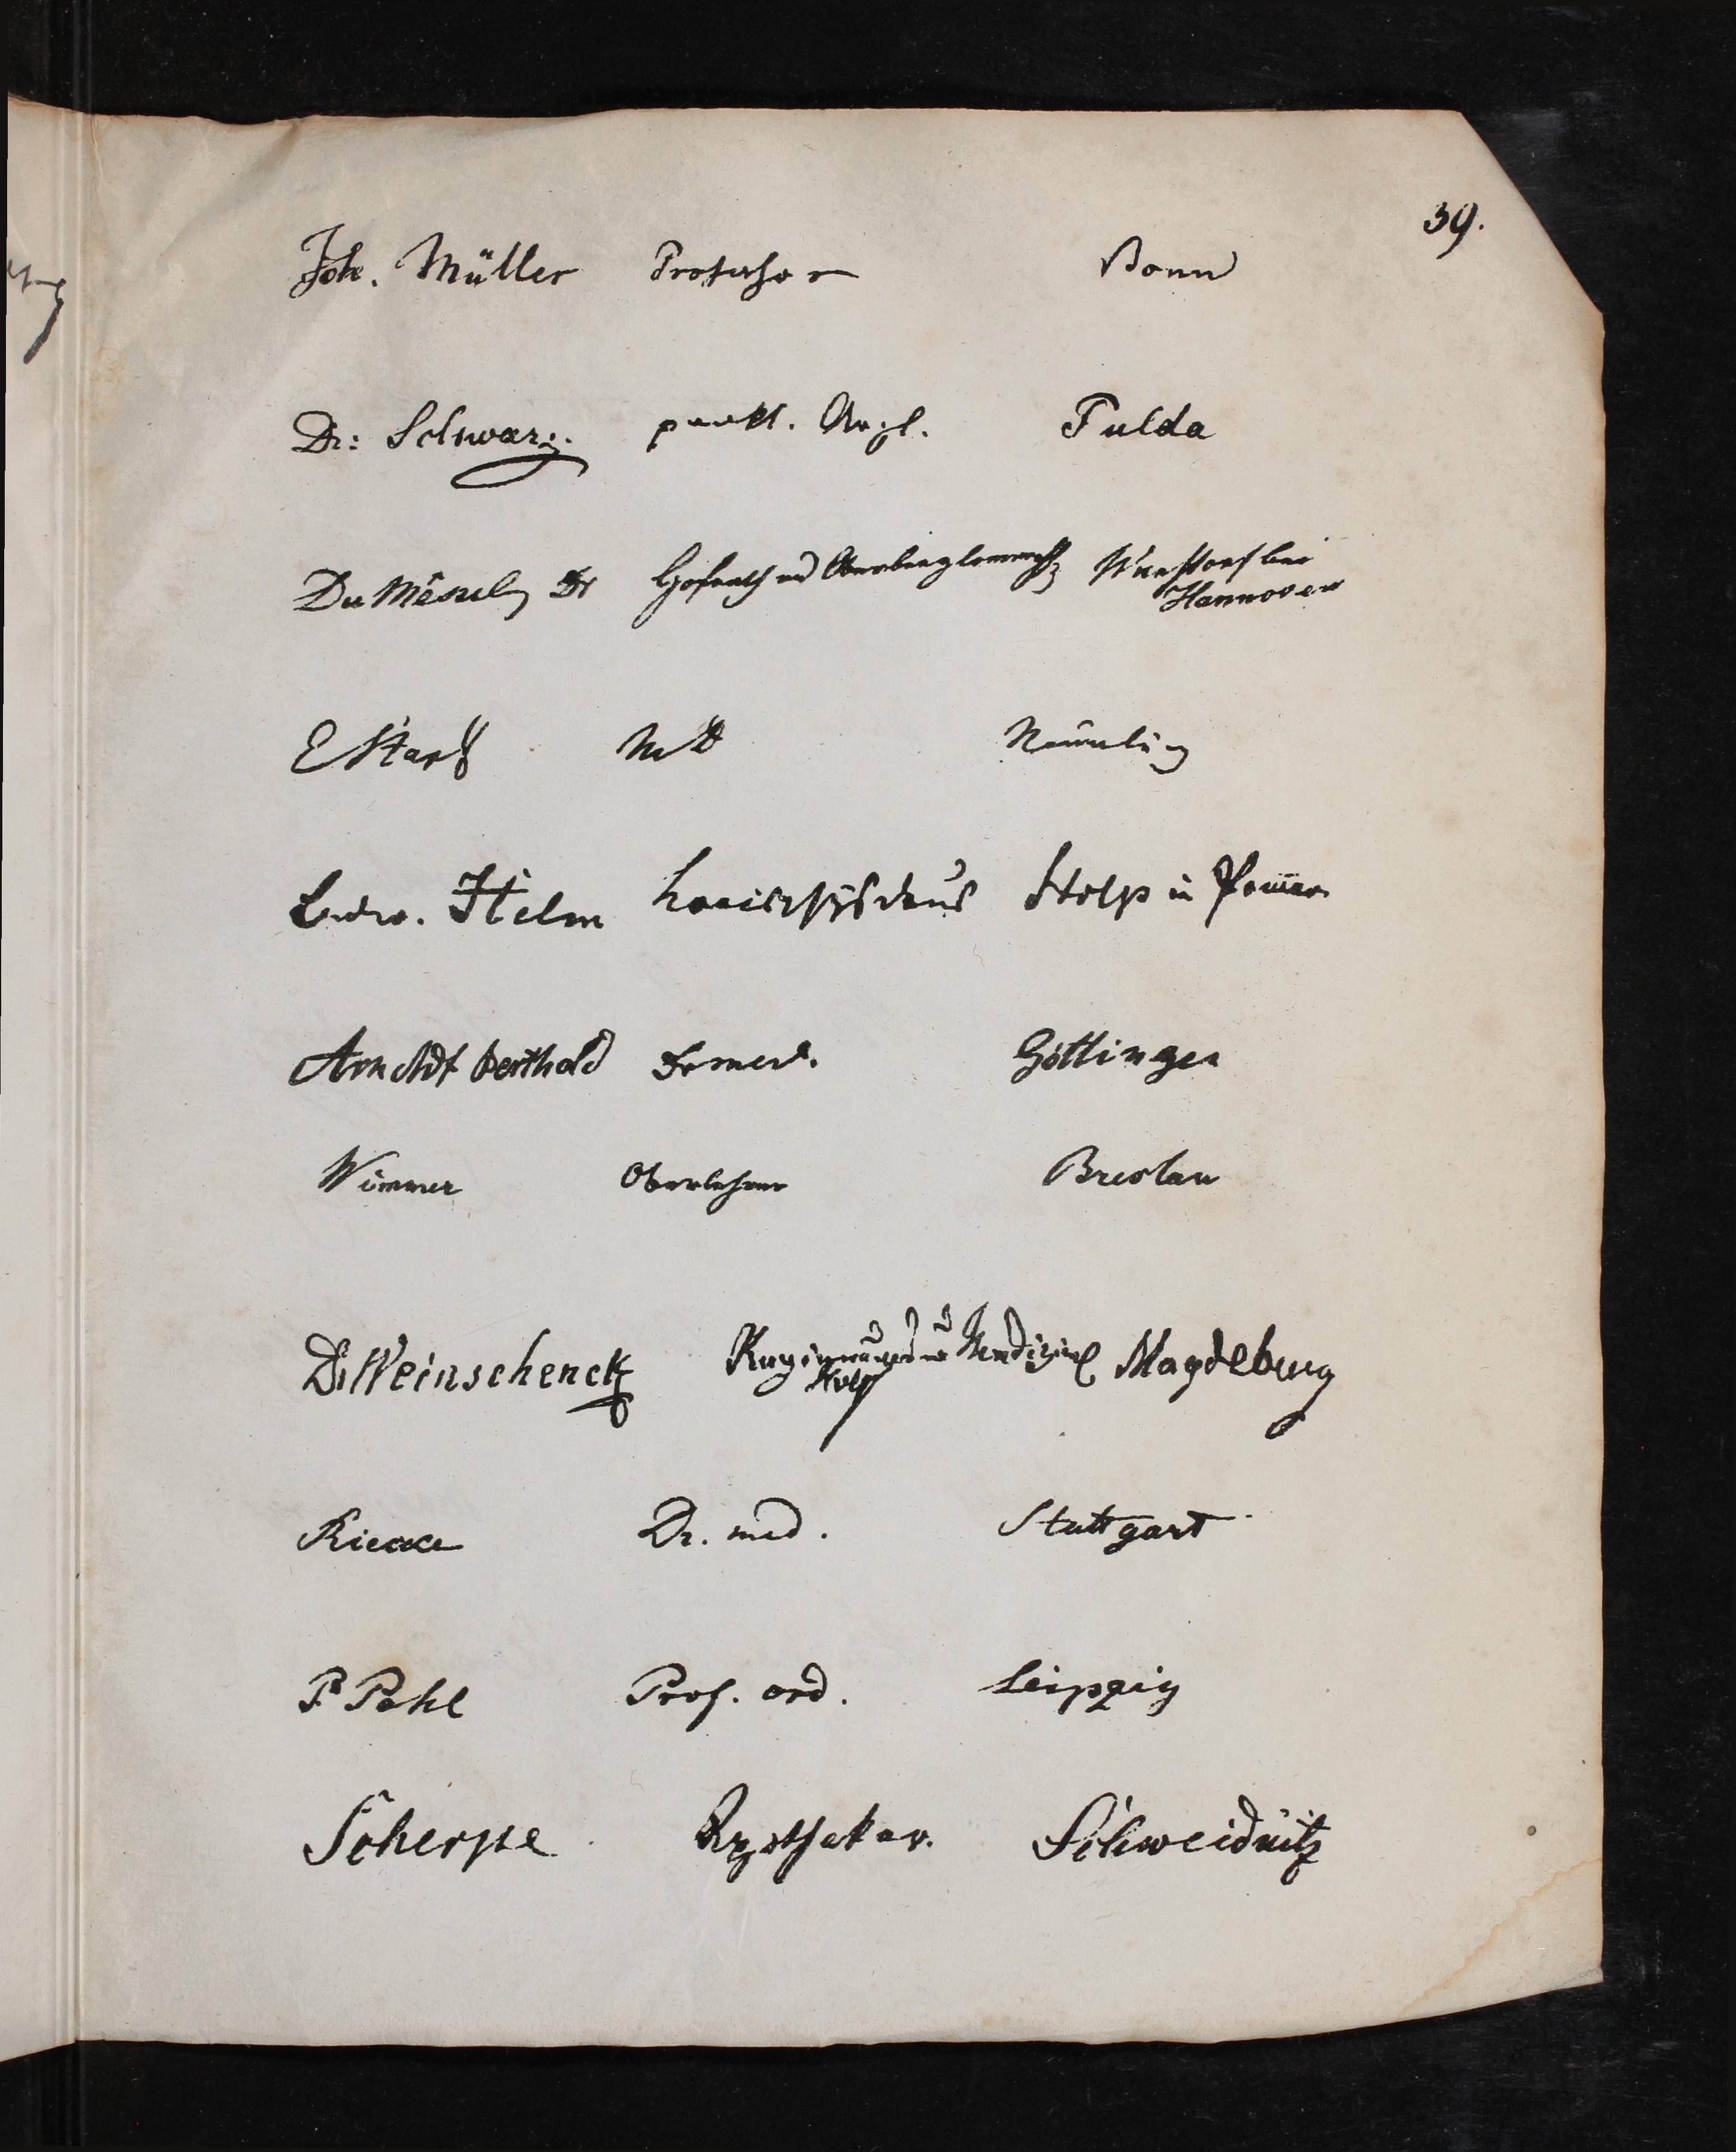 39.
Joh. Müller Professor Bonn
Dr: Schwarz. prakt. Arzt. Fulda
Du Mênil Dr Hofrath und Oberbergcommissär Wunstorf bei
Hannover
E Stark MD
Ludw. Helm Stolp in Pommern
Arnoldt Berthold Dr med. Göttingen
Wimmer Oberlehrer Breslau
Dr Weinschenck Regierungs und Medizinal Magdeburg
Rath
Riecke Dr. med. Stuttgart
P Pohl Prof. ord. Leipzig
Scherpe Apotheker. Schweidnitz